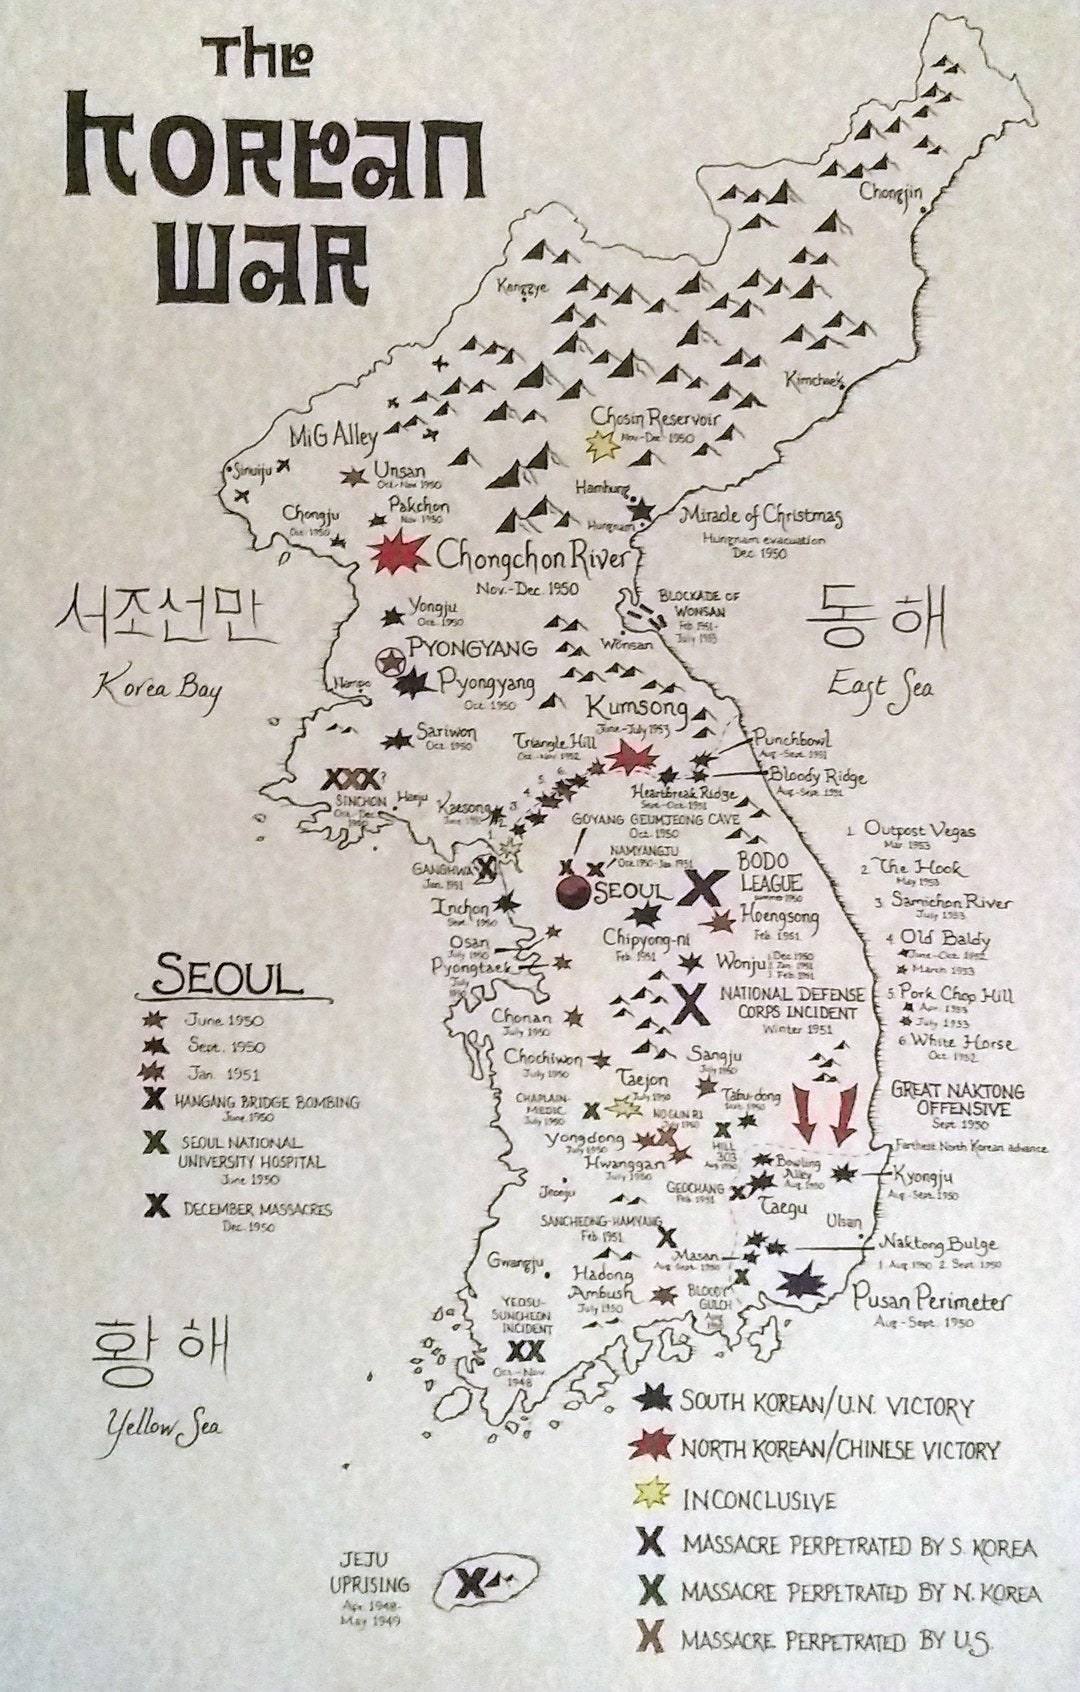 The
Korean
War
Chongjin
Kanggye
Kimchaek
Chosin Reservoir
Nov-Dec 1950
MiG Alley
Sinuiju
Unsan
Oct-Nov 1950
Hamhung
Pakchon
Nov 1950
Chongju
Oct. 1950
Hungnam
Miracle of Christmas
Hungnam evacuation
Dec 1950
Chongchon River
Nov.-Dec. 1950
서조선만
Korea Bay
동해
East Sea
BLOCKADE OF
WONSAN
Feb 1951-
July 1953
Yongju
Oct. 1950
Wonsan
PYONGYANG
Nampo
Pyongyang
Oct. 1950
Kumsong
June-July 1953
Sariwon
Oct. 1950
Triangle Hill
Oct-Nov 1952
Punchbowl
Aug-Sept. 1951
XXX?
SINCHON
Oct-Dec
1950
Haeju
Bloody Ridge
Aug-Sept. 1951
Heartbreak Ridge
Sept-Oct. 1951
Kaesong
June 1950
1.
2.
3.
4.
5.
6.
GOYANG GEUMJEONG CAVE
Oct. 1950
NAMYANGJU
Oct 1950-Jan 1951
GANGHWA
Jan. 1951
SEOUL
BODO
LEAGUE
summer 1950
Inchon
Sept. 1950
Chipyong-ni
Feb. 1951
Hoengsong
Feb. 1951
Osan
July 1950
Pyongtaek
July
1950
Wonju
1. Dec 1950
2. Jan. 1951
3. Feb. 1951
NATIONAL DEFENSE
CORPS INCIDENT
Winter 1951
Chonan
July 1950
Chochiwon
July 1950
Sangju
July 1950
Taejon
July 1950
CHAPLAIN-
MEDIC
July 1950
NO GUN RI
July 1950
Tabu-dong
Sept. 1950
Yongdong
July 1950
Hwanggan
July 1950
HILL
303
Aug 1950
Bowling
Alley
Aug. 1950
GREAT NAKTONG
OFFENSIVE
Sept. 1950
Farthest North Korean advance
Kyongju
Aug-Sept. 1950
Jeonju
GEOCHANG
Feb. 1951
Taegu
SANCHEONG-HAMYANG
Feb 1951
Ulsan
Masan
Aug-Sept. 1950
Naktong Bulge
1. Aug 1950 2. Sept. 1950
Gwangju
Hadong
Ambush
July 1950
BLOODY
GULCH
Aug
1950
Pusan Perimeter
Aug-Sept. 1950
YEOSU-
SUNCHEON
INCIDENT
XX
Oct-Nov
1948
1. Outpost Vegas
Mar 1953
2. The Hook
May 1953
3. Samichon River
July 1953
4. Old Baldy
June-Oct. 1952
March 1953
5. Pork Chop Hill
Apr. 1953
July 1953
6. White Horse
Oct. 1952
SEOUL
June 1950
Sept. 1950
Jan. 1951
X HANGANG BRIDGE BOMBING
June 1950
X SEOUL NATIONAL
UNIVERSITY HOSPITAL
June 1950
X DECEMBER MASSACRES
Dec. 1950
황해
Yellow Sea
JEJU
UPRISING
Apr. 1948-
May 1949
X
SOUTH KOREAN/U.N. VICTORY
NORTH KOREAN/CHINESE VICTORY
INCONCLUSIVE
X MASSACRE PERPETRATED BY S. KOREA
X MASSACRE PERPETRATED BY N. KOREA
X MASSACRE PERPETRATED BY U.S.